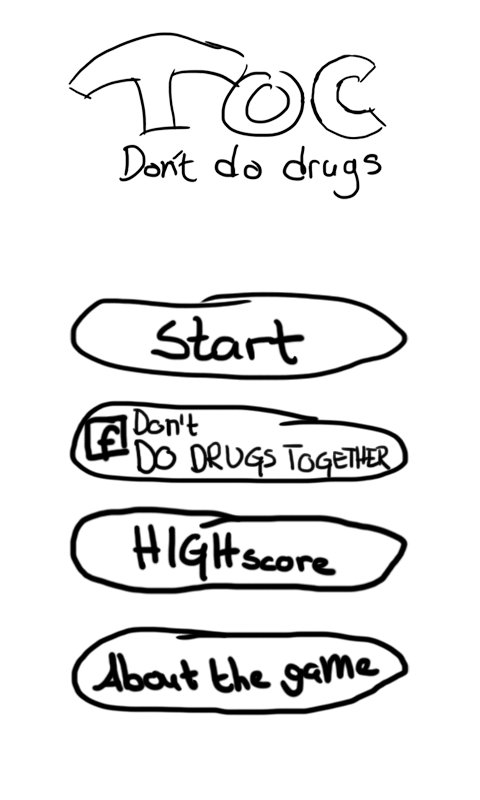 TOC
Don't do drugs
Start
f Don't
DO DRUGS TOGETHER
HIGHscore
About the game